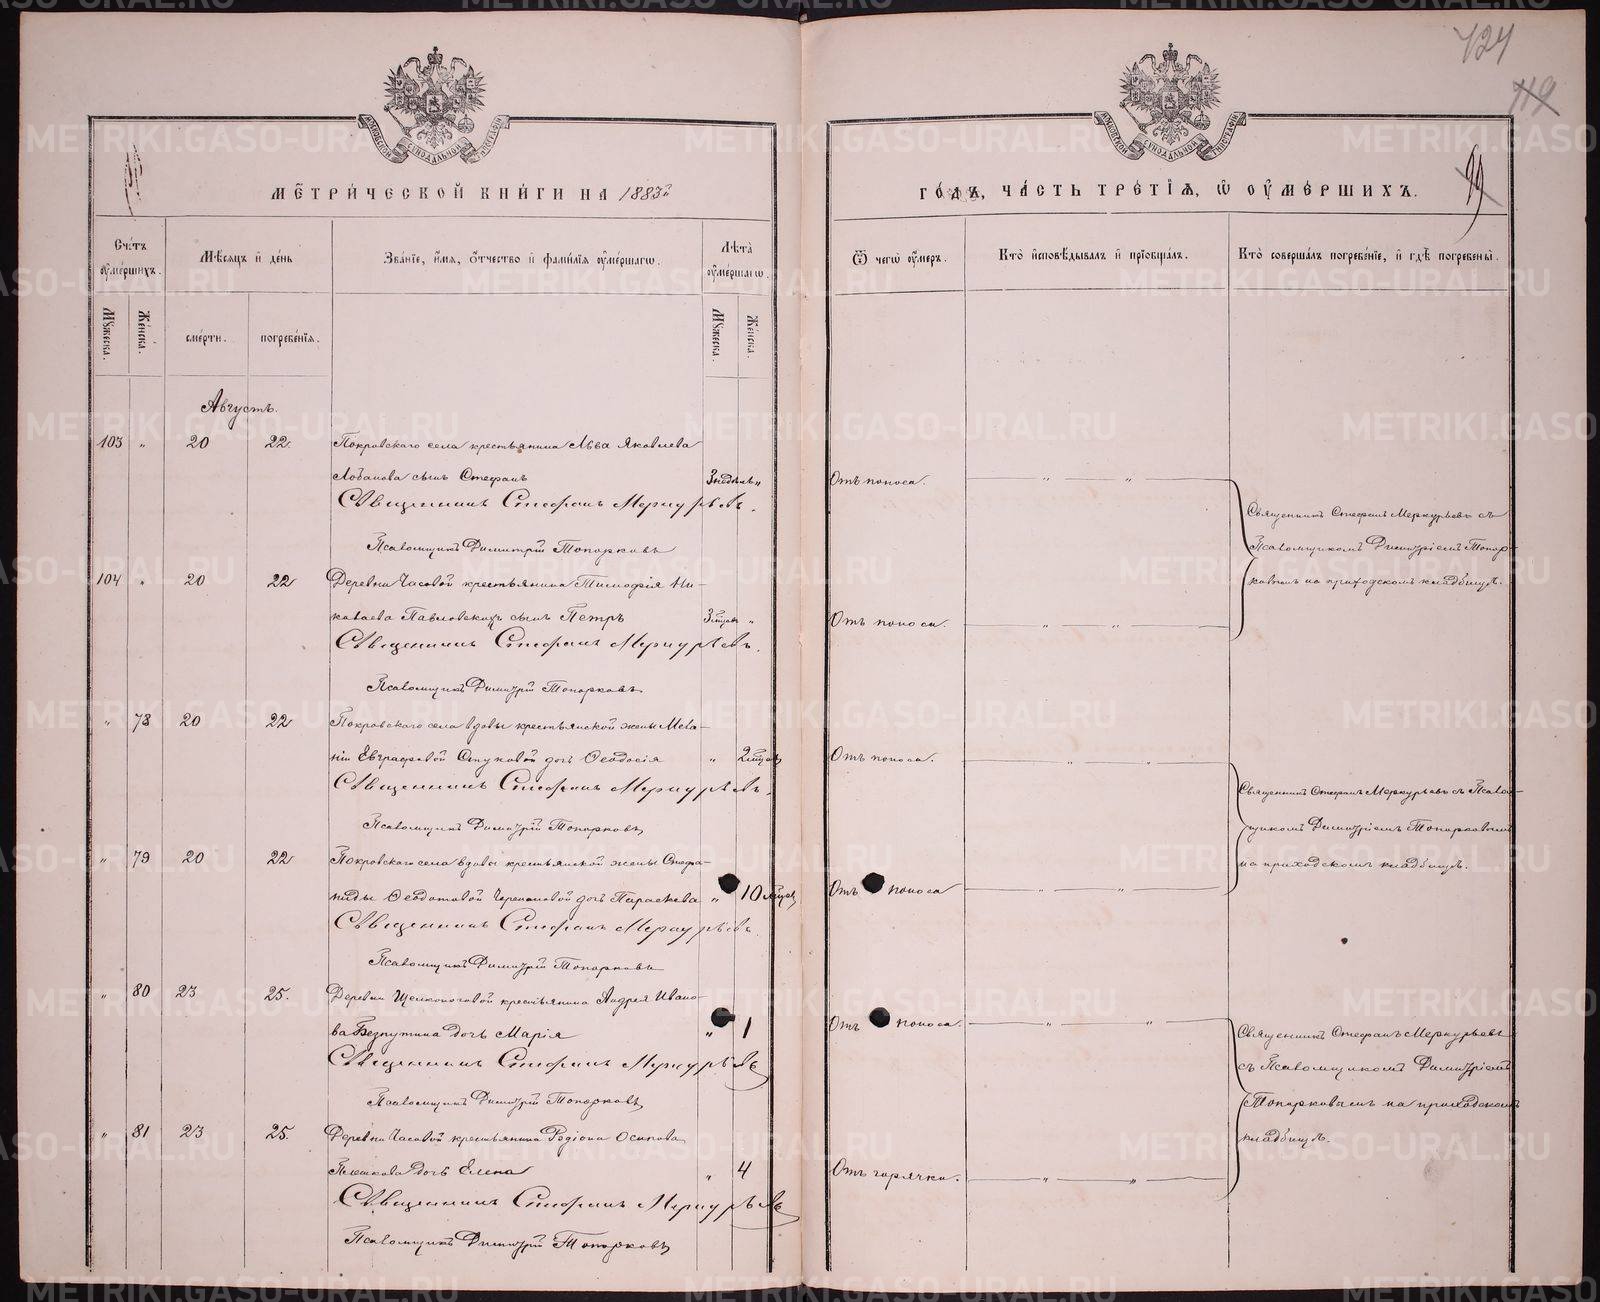 424
119
99
МЕТРИЧЕСКОЙ КНИГИ НА 1883й
ГОДЪ, ЧАСТЬ ТРЕТІЯ, Ѿ ОУМЕРШИХЪ.
Счетъ оумершихъ.
Мѣсяцъ и день
Званіе, имя, отчество и фамилія оумершагѡ.
Лѣта оумершагѡ.
Ѿ чегѡ оумеръ.
Кто исповѣдывалъ и пріобщалъ.
Кто совершалъ погребеніе, и гдѣ погребены.
Мужеска.
Женска.
смерти.
погребенія.
Мужеска.
Женска.
Августъ.
103 „ 20 22. Покровскаго села крестьянина Льва Яковлева
Лобанова сынъ Стефанъ 3 недѣль „ Отъ поноса. „ „
Священникъ Стефанъ Меркурьевъ.
Псаломщикъ Димитрій Топорковъ
Священникъ Стефанъ Меркурьевъ съ
Псаломщикомъ Димитріемъ Топор-
ковымъ на приходскомъ кладбищѣ.
104 „ 20 22 Деревни Часовой крестьянина Тимофія Ни-
колаева Павловскихъ сынъ Петръ „ Отъ поноса. „ „
Священникъ Стефанъ Меркурьевъ.
Псаломщикъ Димитрій Топорковъ
„ 78 20 22 Покровскаго села вдовы крестьянской жены Мела-
ніи Евграфовой дочь Ѳеодосія „ Отъ поноса. „ „
Священникъ Стефанъ Меркурьевъ.
Псаломщикъ Димитрій Топорковъ
Священникъ Стефанъ Меркурьевъ съ Псалом-
щикомъ Димитріемъ Топорковымъ
на приходскомъ кладбищѣ.
„ 79 20 22 Покровскаго села вдовы крестьянской жены Стефа-
ниды Ѳеодотовой дочь Параскева „ 10 Отъ поноса „ „
Священникъ Стефанъ Меркурьевъ.
Псаломщикъ Димитрій Топорковъ
„ 80 23 25. Деревни Щелконоговой крестьянина Андрея Ивано-
ва Безпутина дочь Марія „ 1 Отъ поноса. „ „
Священникъ Стефанъ Меркурьевъ
Псаломщикъ Димитрій Топорковъ
Священникъ Стефанъ Меркурьевъ
съ Псаломщикомъ Димитріемъ
Топорковымъ на приходскомъ
кладбищѣ.
„ 81 23 25. Деревни Часовой крестьянина Родіона Осипова
дочь Елена „ 4 Отъ горячки. „ „
Священникъ Стефанъ Меркурьевъ
Псаломщикъ Димитрій Топорковъ
METRIKI.GASO-URAL.RU